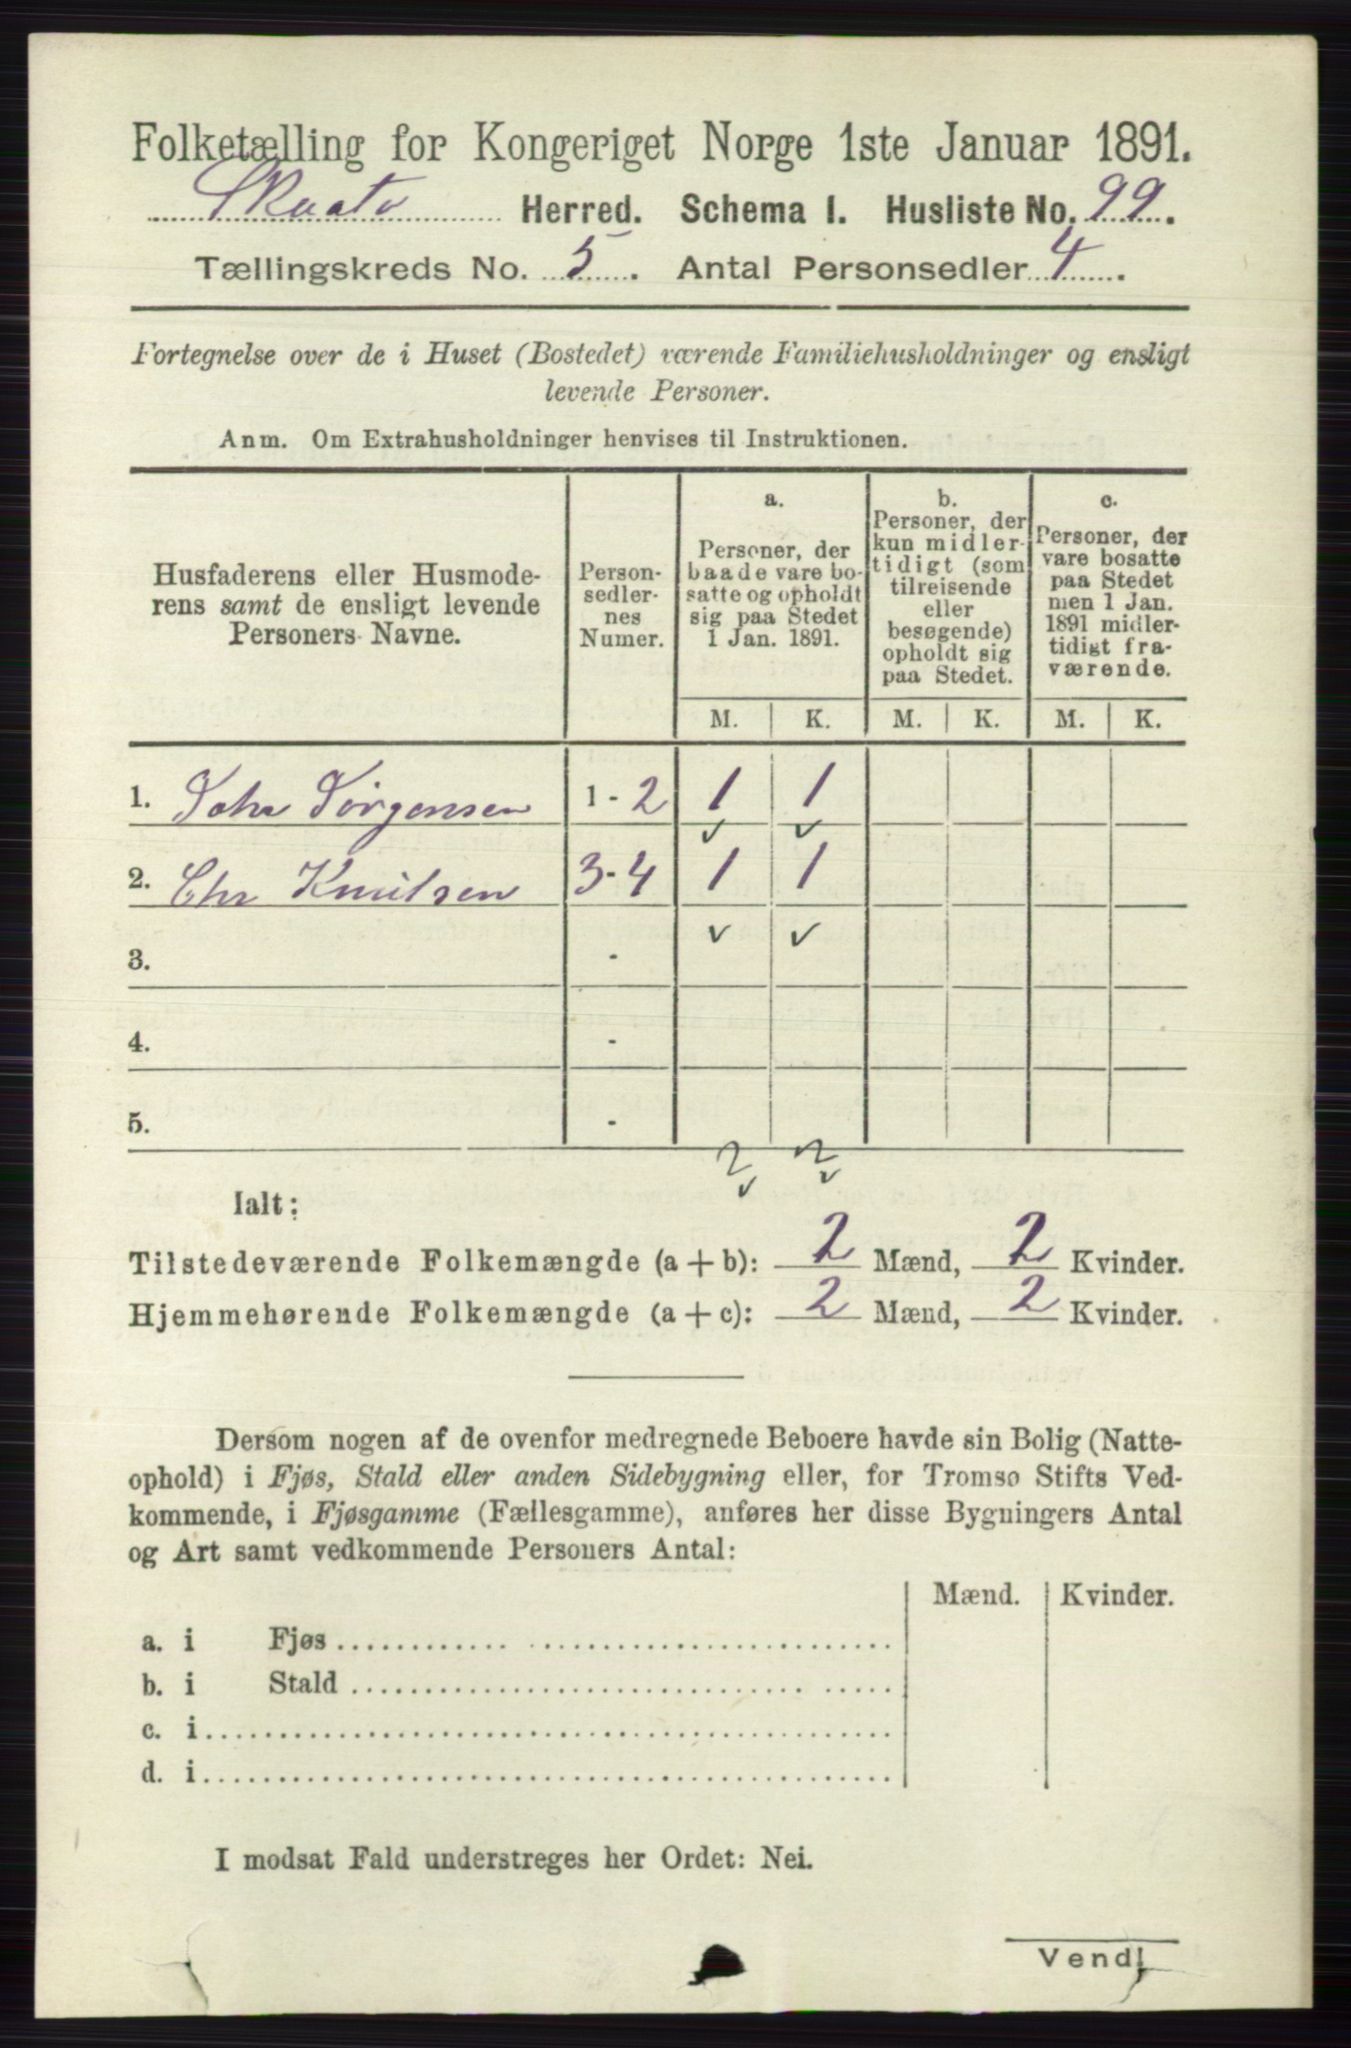 Folketælling for Kongeriget Norge 1ste Januar 1891.
Skaatø Herred. Schema I. Husliste No. 99.
Tællingskreds No. 5. Antal Personsedler 4.
Fortegnelse over de i Huset (Bostedet) værende Familiehusholdninger og ensligt
levende Personer.
Anm. Om Extrahusholdninger henvises til Instruktionen.
Husfaderens eller Husmode-
rens samt de ensligt levende
Personers Navne.
Person-
sedler-
nes
Numer.
a.
Personer, der
baade vare bo-
satte og opholdt
sig paa Stedet
1 Jan. 1891.
b.
Personer, der
kun midler-
tidigt (som
tilreisende
eller
besøgende)
opholdt sig
paa Stedet.
c.
Personer, der
vare bosatte
paa Stedet
men 1 Jan.
1891 midler-
tidigt fra-
værende.
M. K. M. K. M. K.
1. Johs Jörgensen 1-2 1 1
2. Chr Knutsen 3-4 1 1
3. -
4. -
5. -
2 2
Ialt:
Tilstedeværende Folkemængde (a + b): 2 Mænd, 2 Kvinder.
Hjemmehørende Folkemængde (a + c): 2 Mænd, 2 Kvinder.
Dersom nogen af de ovenfor medregnede Beboere havde sin Bolig (Natte-
ophold) i Fjøs, Stald eller anden Sidebygning eller, for Tromsø Stifts Ved-
kommende, i Fjøsgamme (Fællesgamme), anføres her disse Bygningers Antal
og Art samt vedkommende Personers Antal:
Mænd. Kvinder.
a. i Fjøs
b. i Stald
c. i
d. i
I modsat Fald understreges her Ordet: Nei.
Vend!